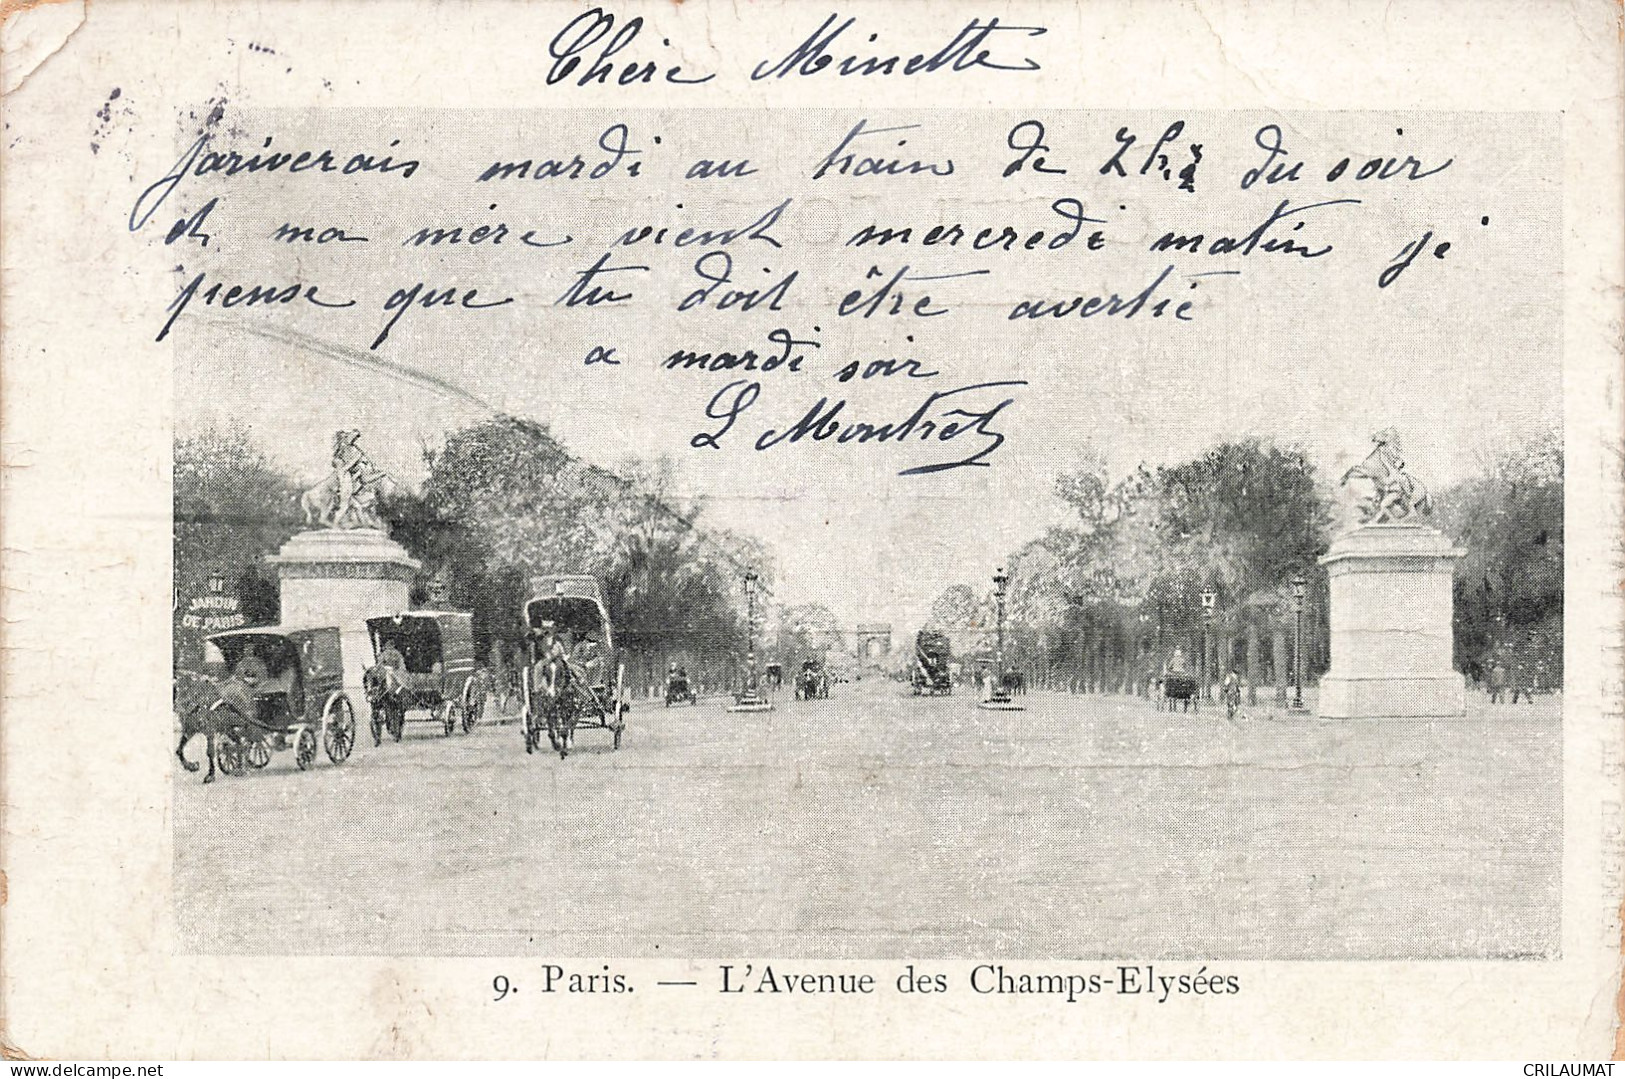 Chère Minette
Jariverais mardi au train de 7h ½ du soir
et ma mère vient mercredi matin je
pense que tu doit être avertie
a mardi soir
L Montrêt
JARDIN
DE PARIS
9. Paris. — L'Avenue des Champs-Elysées
www.delcampe.net
CRILAUMAT